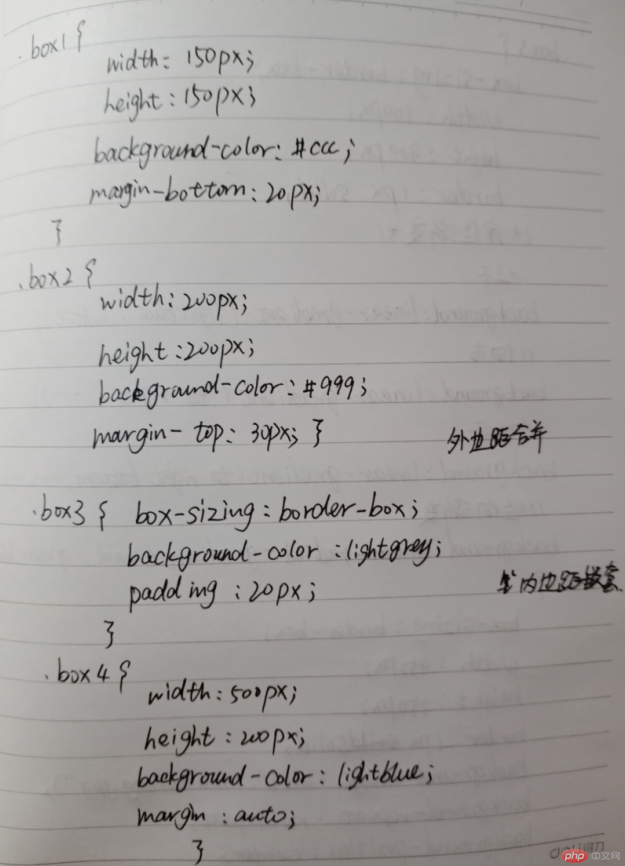 .box1 {
width: 150px;
height: 150px;
background-color: #ccc;
margin-bottom: 20px;
}
.box2 {
width: 200px;
height: 200px;
background-color: #999;
margin-top: 30px; }
外边距合并
.box3 { box-sizing: border-box;
background-color: lightgrey;
padding: 20px;
内边距嵌套
}
.box4 {
width: 500px;
height: 200px;
background-color: lightblue;
margin: auto;
}
php 中文网